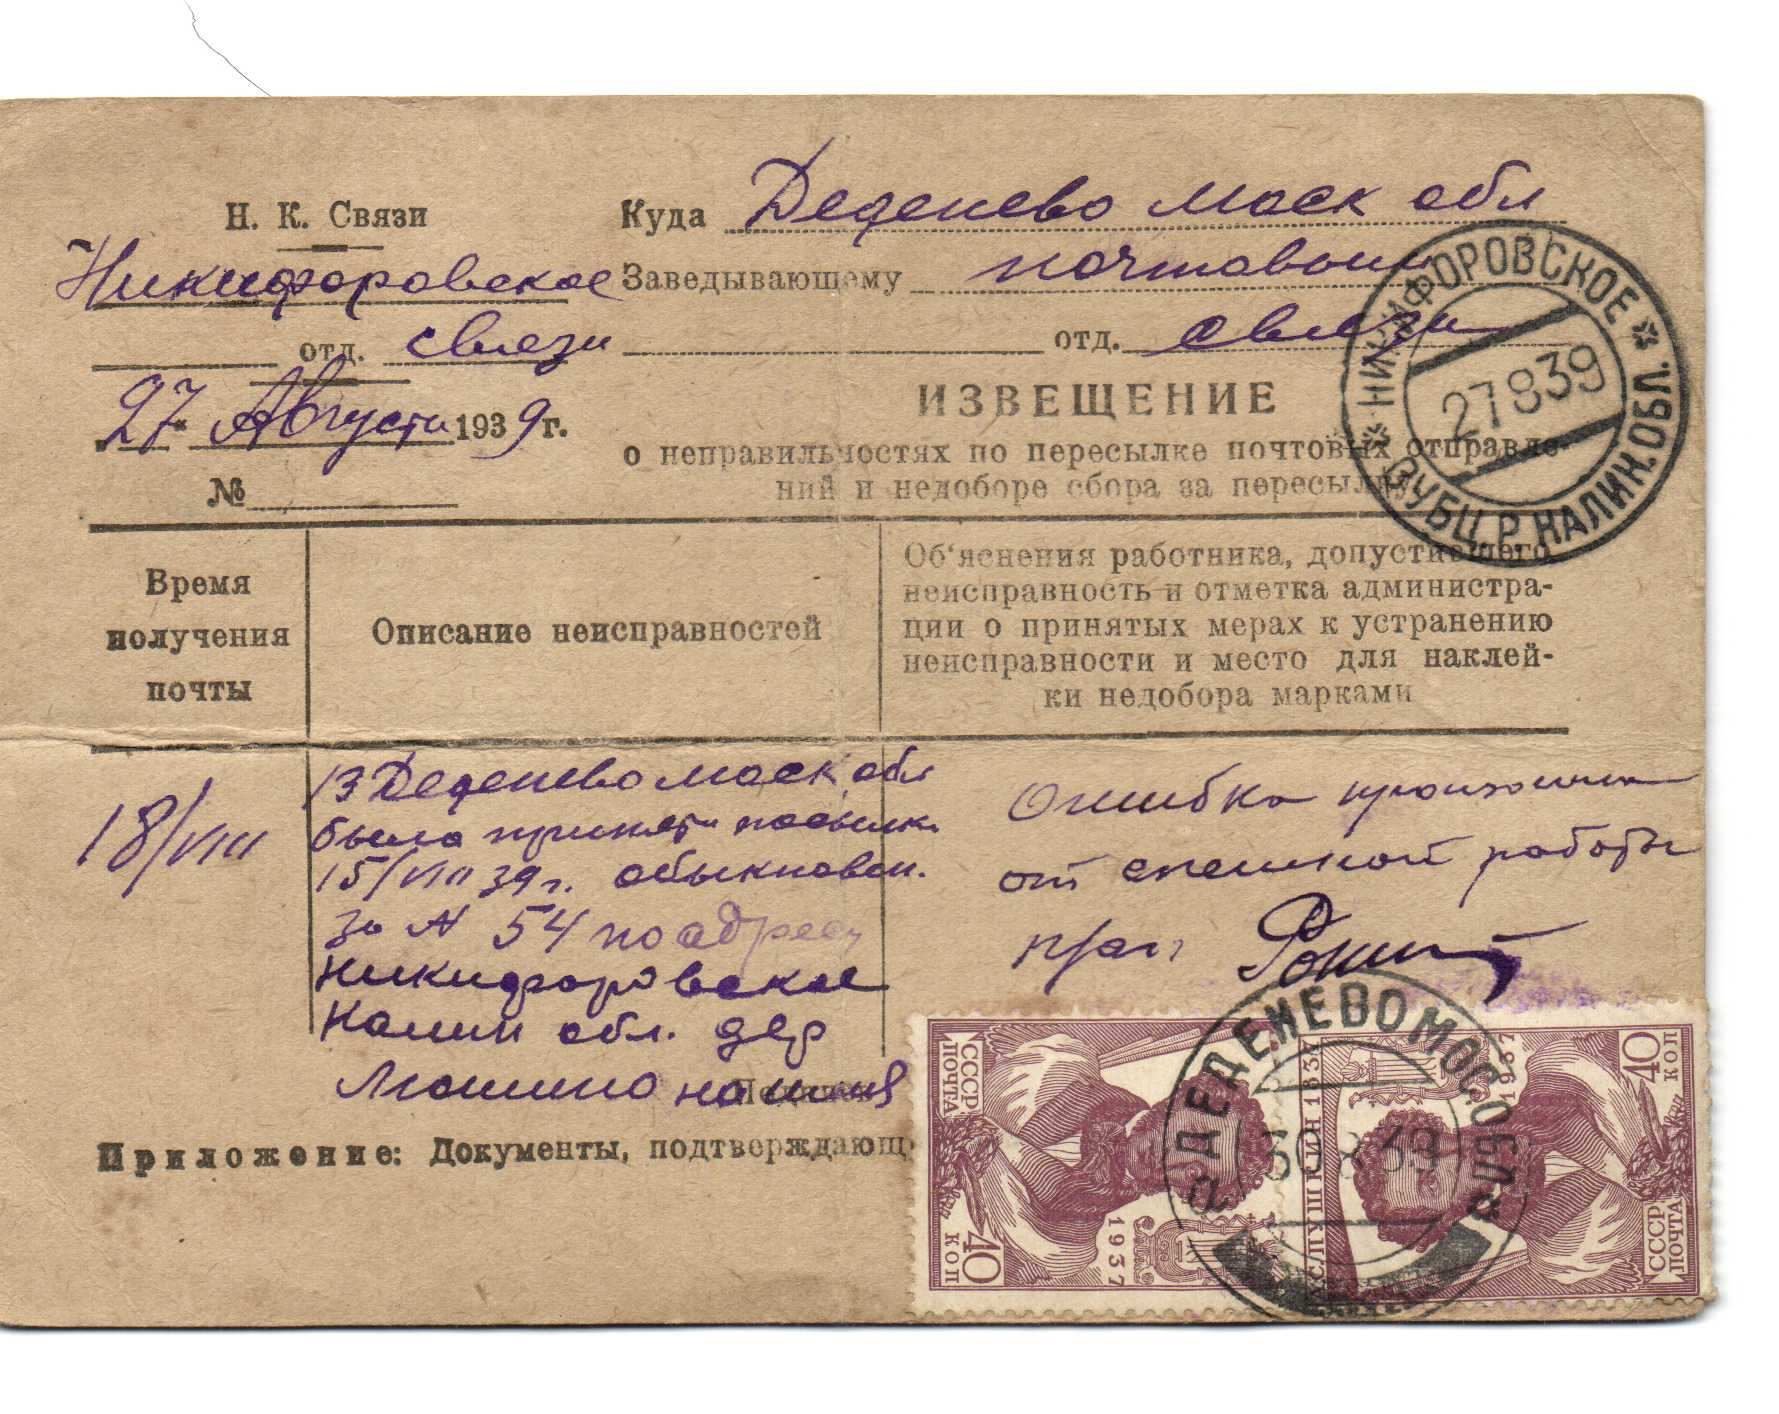 Н. К. Связи
Никифоровское
отд. связи
27 Августа 1939 г.
№
Куда Деденево Моск обл
Заведывающему почтовым
отд. связи
ИЗВЕЩЕНИЕ
о неправильностях по пересылке почтовых отправле-
ний и недоборе сбора за пересылку
НИКИФОРОВСКОЕ
ЗУБЦ. Р. КАЛИН. ОБЛ.
27 8 39
Время
получения
почты
Описание неисправностей
Об'яснения работника, допустившего
неисправность и отметка администра-
ции о принятых мерах к устранению
неисправности и место для наклей-
ки недобора марками
18/VIII
В Деденево Моск. обл
была принята посылка
15/VIII 39 г. обыкновен.
за № 54 по адресу
Никифоровское
Калин обл. дер
Ошибка произошла
от спешной работы
Приложение: Документы, подтверждающ
СССР
ПОЧТА
40
КОП
1937
А.С.ПУШКИН 1837
1937
40
КОП
СССР
ПОЧТА
ДЕДЕНЕВО МОСК
30 8 39